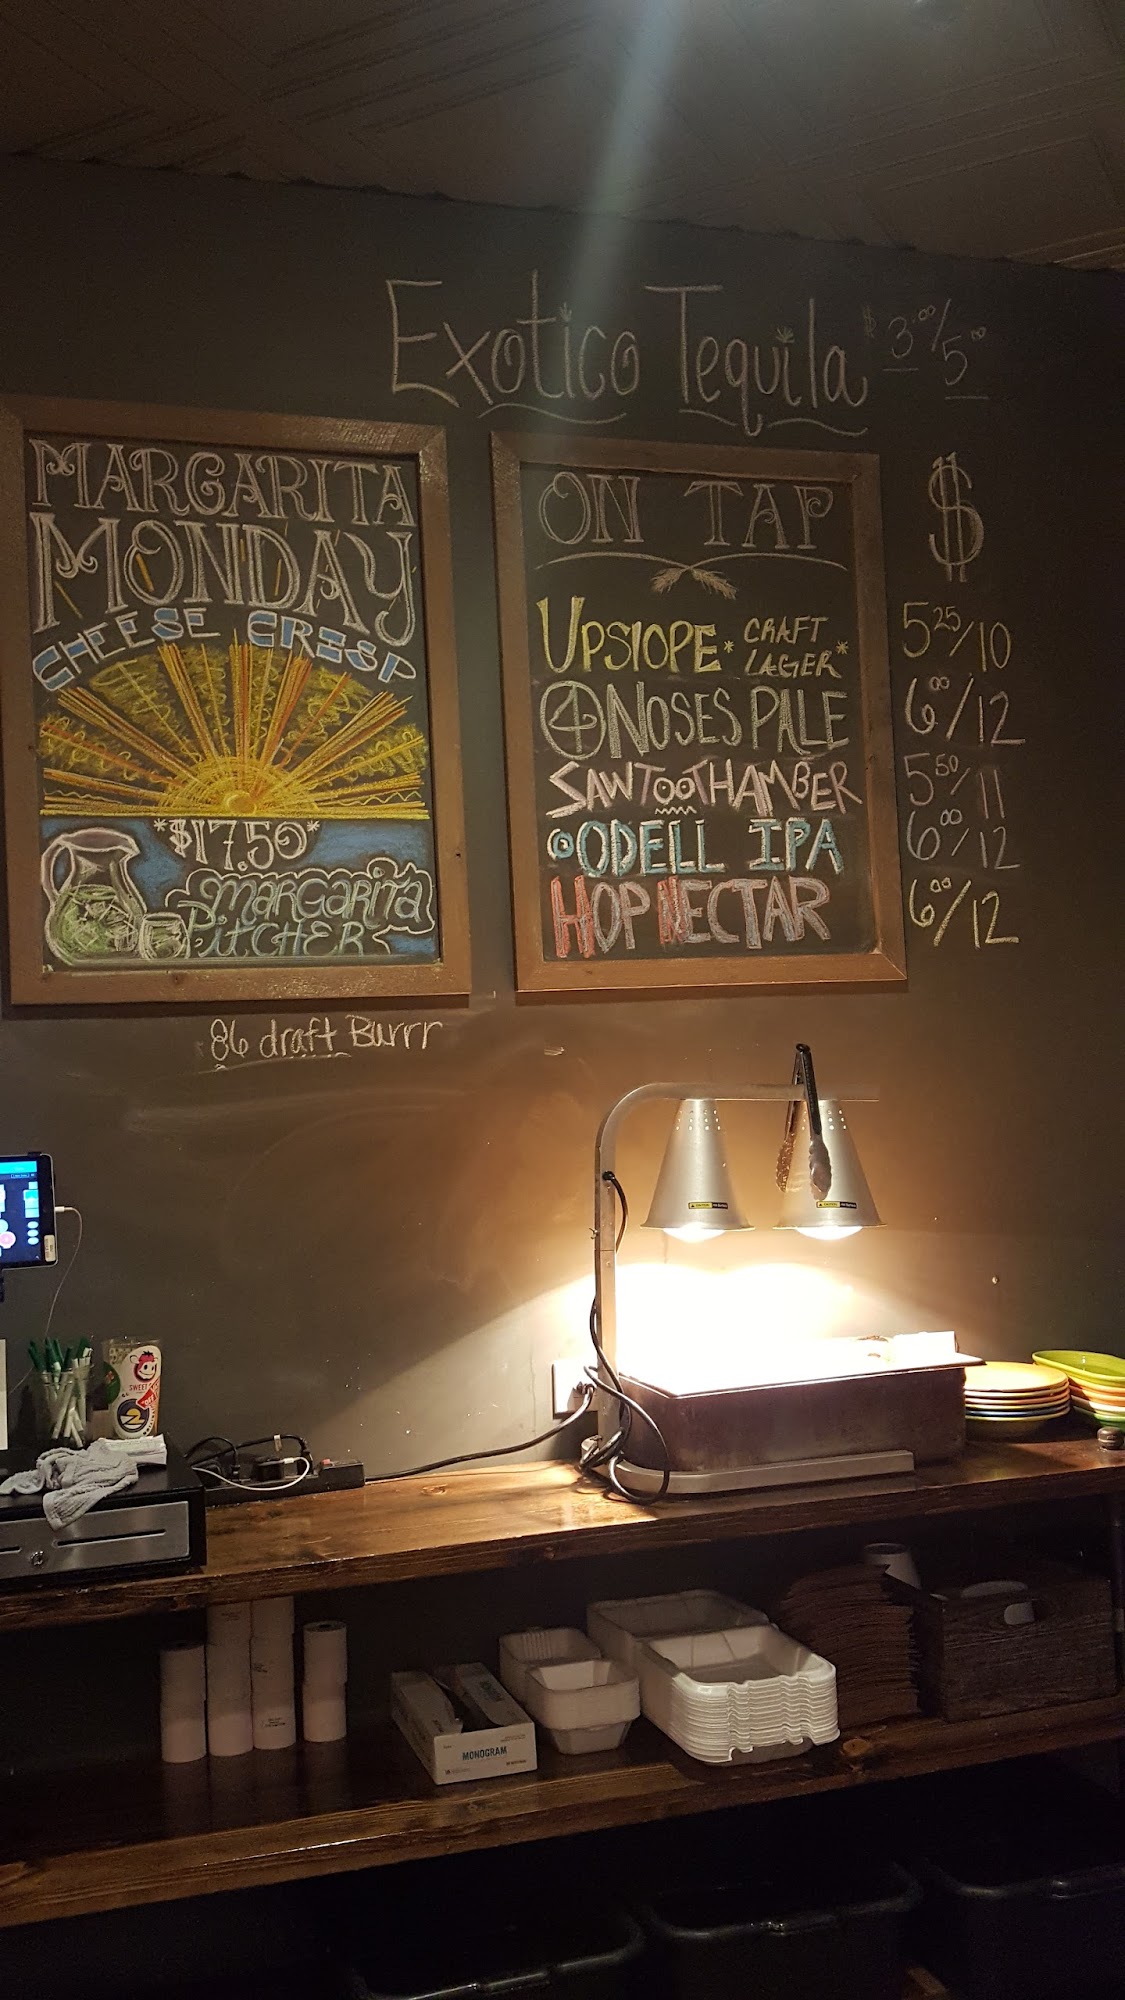 Exotico Tequila $3.00/5.00
MARGARITA
MONDAY
CHEESE CRISP
*$17.50*
MARGARITA
PITCHER
ON TAP
$
UPSLOPE* CRAFT LAGER* 5.25/10
4 NOSES PALE 6.00/12
SAWTOOTH AMBER 5.50/11
ODELL IPA 6.00/12
HOP NECTAR 6.00/12
86 draft Burrr
SWEET
MONOGRAM